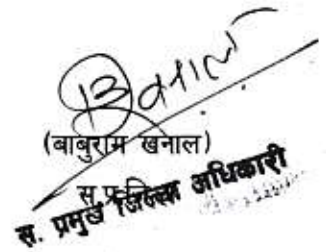 (बाबुराम खनाल)
स.प्र.जि.अ.
स. प्रमुख जिल्ला अधिकारी